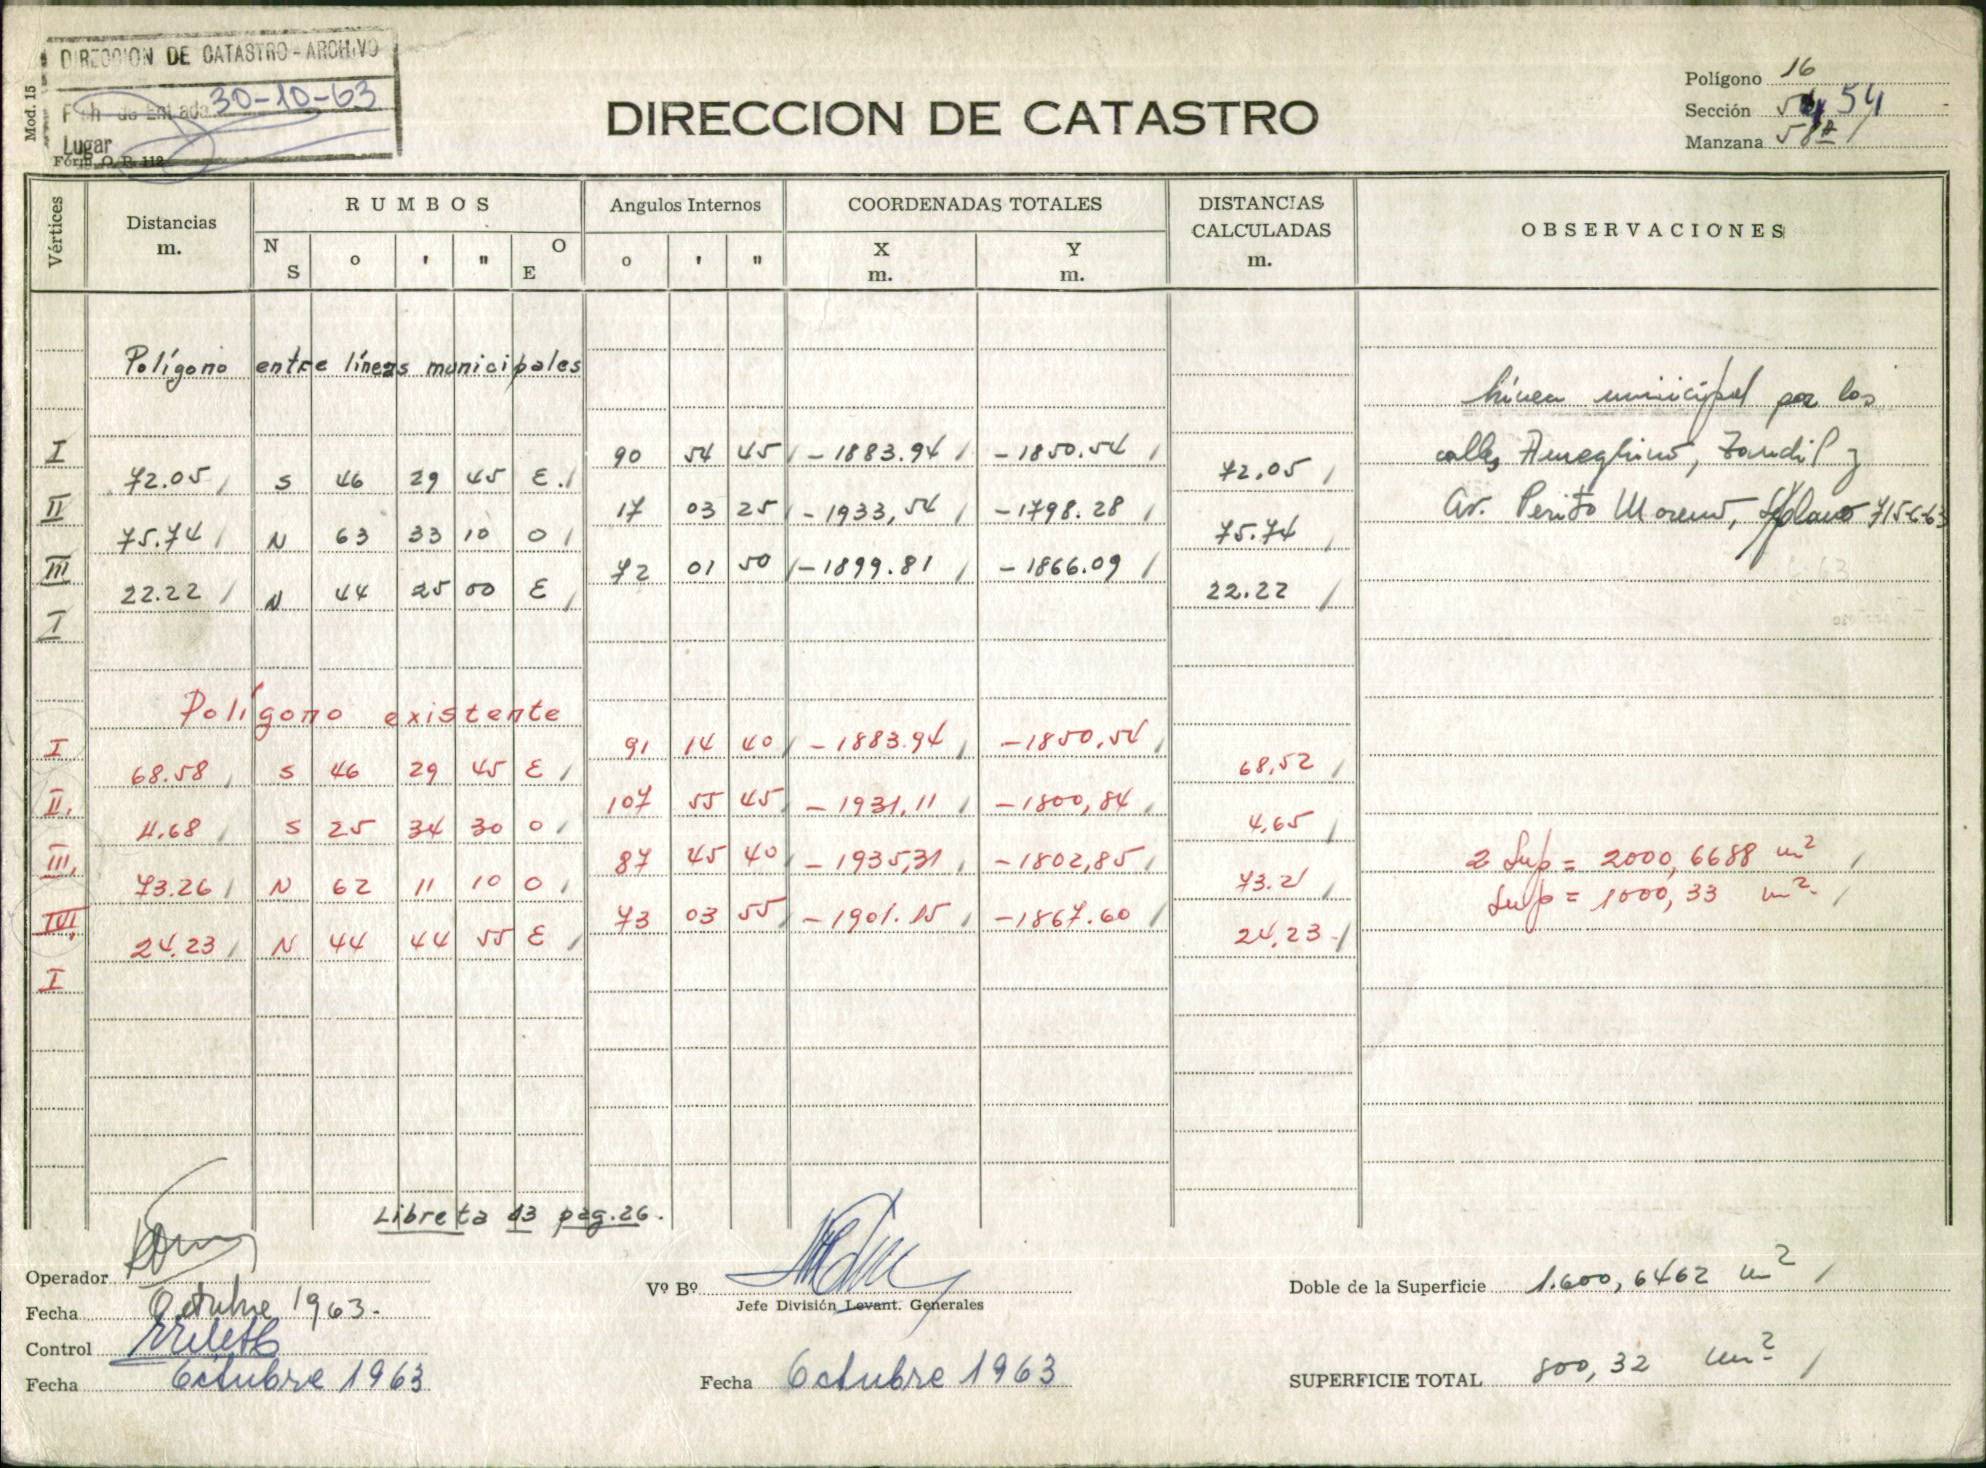 DIRECCION DE CATASTRO - ARCHIVO
30-10-63
Lugar
Mod. 15
Form. O. P. 112
DIRECCION DE CATASTRO
Polígono 16
Sección 54
Manzana 58ª
Vértices
Distancias
m.
RUMBOS
N S ° ' " O E
Angulos Internos
° ' "
COORDENADAS TOTALES
X
m.
Y
m.
DISTANCIAS
CALCULADAS
m.
OBSERVACIONES
Polígono entre líneas municipales
Línea municipal por las
calles Ameghino, Tandil y
Av. Perito Moreno,
I 90 54 45 -1883.94 -1850.54
72.05 S 46 29 45 E. 72.05
II 17 03 25 -1933,54 -1798.28
75.74 N 63 33 10 O 75.74
III 72 01 50 -1899.81 -1866.09
22.22 N 44 25 00 E 22.22
I
Polígono existente
I 91 14 40 -1883.94 -1850,54
68.58 S 46 29 45 E 68,52
II. 107 55 45 -1931,11 -1800,84
4.68 S 25 34 30 O 4,65
III. 87 45 40 -1935,31 -1802,85
73.26 N 62 11 10 O 73.21
IV. 73 03 55 -1901.15 -1867.60
24.23 N 44 44 55 E 24,23
I
2 Sup = 2000,6688 m²
Sup = 1000,33 m².
Libreta 13 pag. 26.
Operador
Fecha Octubre 1963.
Control
Fecha Octubre 1963
Vº Bº
Jefe División Levant. Generales
Fecha Octubre 1963
Doble de la Superficie 1.600,6462 m²
SUPERFICIE TOTAL 800,32 m²